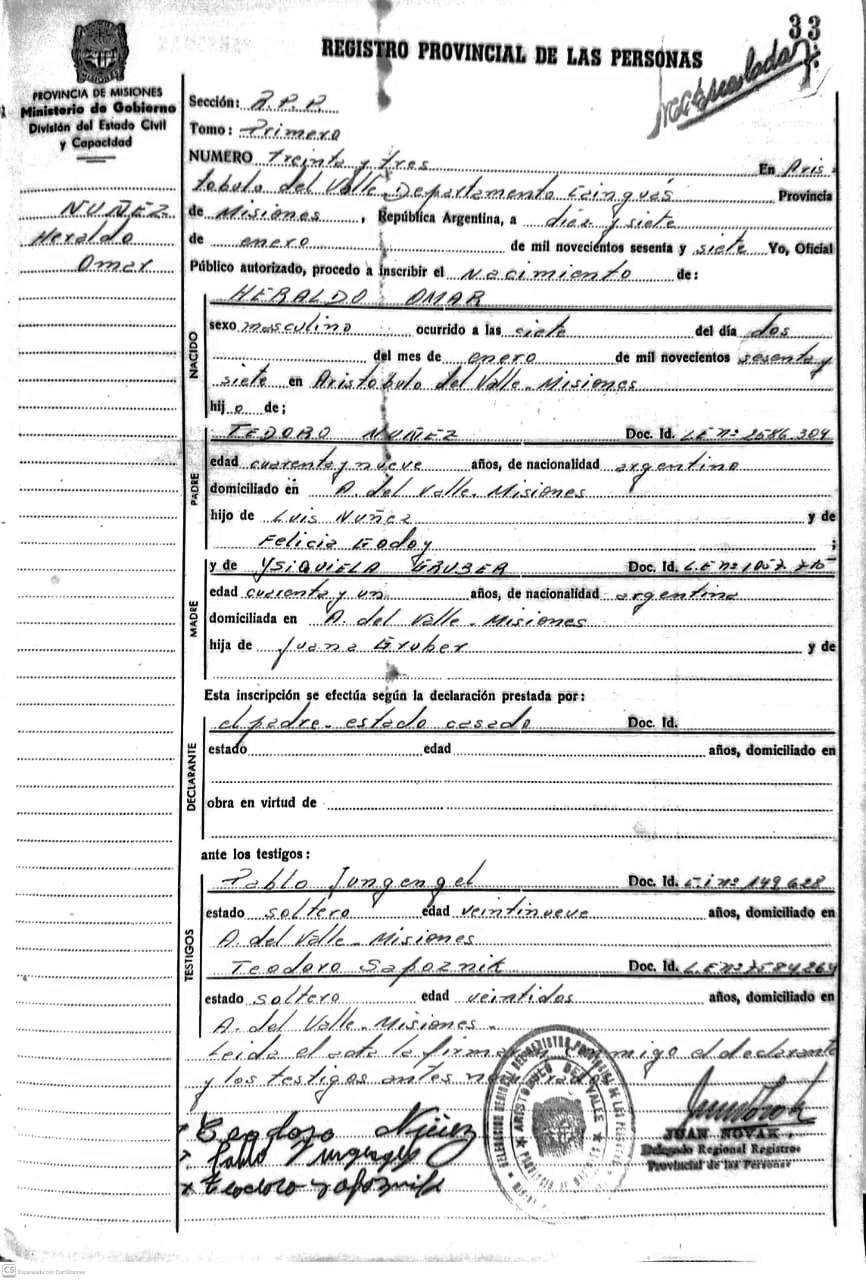 33
REGISTRO PROVINCIAL DE LAS PERSONAS
PROVINCIA DE MISIONES
Ministerio de Gobierno
División del Estado Civil
y Capacidad
NUÑEZ
Heraldo
Omar
Sección: R.P.P.
Tomo: Primero
NUMERO Treinta y tres En Aris-
tobulo del Valle Departamento Cainguás Provincia
de Misiones, República Argentina, a diez y siete
de enero de mil novecientos sesenta y siete Yo, Oficial
Público autorizado, procedo a inscribir el Nacimiento de:
HERALDO OMAR
NACIDO
sexo masculino ocurrido a las siete del día dos
del mes de enero de mil novecientos sesenta y
siete en Aristobulo del Valle-Misiones
hijo de;
PADRE
TEDORO NUÑEZ Doc. Id. L.E nº 2586.304
edad cuarenta y nueve años, de nacionalidad argentino
domiciliado en A. del Valle-Misiones
hijo de Luis Nuñez y de
Felicia Godoy ;
MADRE
y de YSIQUIELA GRUBER Doc. Id. L.E nº
edad cuarenta y un años, de nacionalidad argentina
domiciliada en A. del Valle-Misiones
hija de Juana Gruber y de
Esta inscripción se efectúa según la declaración prestada por:
DECLARANTE
el padre-estado casado Doc. Id.
estado edad años, domiciliado en
obra en virtud de
ante los testigos:
TESTIGOS
Pablo Jungengel Doc. Id. C.I nº 149.628
estado soltero edad veintinueve años, domiciliado en
A. del Valle-Misiones
Teodoro Sapoznik Doc. Id. L.E nº 7584.264
estado soltero edad veintidos años, domiciliado en
A. del Valle-Misiones-
Leida el acta la firman conmigo el declarante
y los testigos antes
Teodoro Nuñez
Pablo Jungengel
Teodoro Sapoznik
ARISTOBULO DEL VALLE
JUAN NOVAK
Delegado Regional Registro
Provincial de las Personas
CS Escaneado con CamScanner